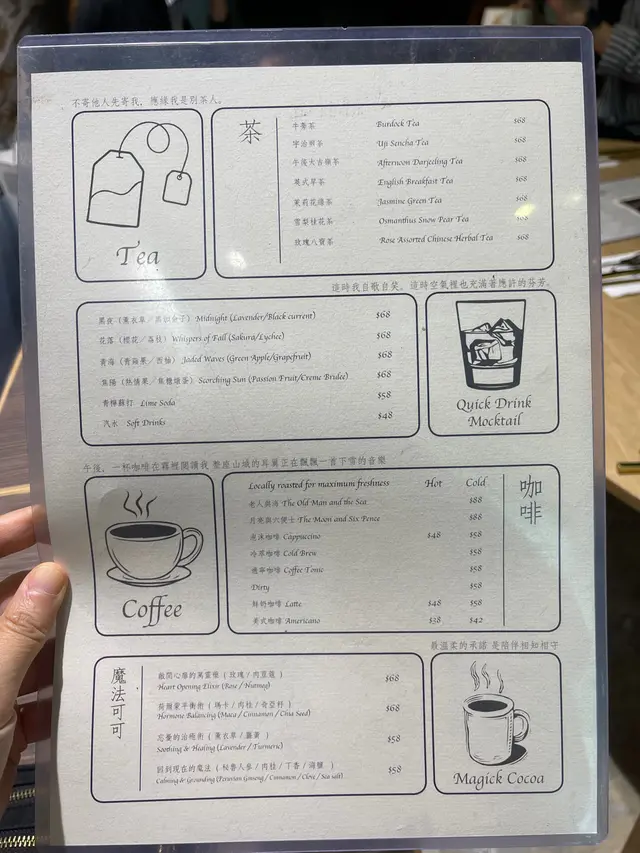 不寄他人先寄我，應緣我是別茶人。
Tea
茶
牛蒡茶 Burdock Tea $68
宇治煎茶 Uji Sencha Tea $68
午後大吉嶺茶 Afternoon Darjeeling Tea $68
英式早茶 English Breakfast Tea $68
茉莉花綠茶 Jasmine Green Tea $68
雪梨桂花茶 Osmanthus Snow Pear Tea $68
玫瑰八寶茶 Rose Assorted Chinese Herbal Tea $68
這時我自歌自笑，這時空氣裡也充滿著應許的芬芳。
黑夜（薰衣草／黑加侖子） Midnight (Lavender/Black current) $68
花落（櫻花／荔枝） Whispers of Fall (Sakura/Lychee) $68
青海（青蘋果／西柚） Jaded Waves (Green Apple/Grapefruit) $68
焦陽（熱情果／焦糖燉蛋） Scorching Sun (Passion Fruit/Creme Brulee) $68
青檸蘇打 Lime Soda $58
汽水 Soft Drinks $48
Quick Drink
Mocktail
午後，一杯咖啡在霧裡閱讀我 整座山城的耳葉正在飄飄一首下雪的音樂
Coffee
Locally roasted for maximum freshness Hot Cold
老人與海 The Old Man and the Sea $88
月亮與六便士 The Moon and Six Pence $88
泡沫咖啡 Cappuccino $48 $58
冷萃咖啡 Cold Brew $58
通寧咖啡 Coffee Tonic $58
Dirty $58
鮮奶咖啡 Latte $48 $58
美式咖啡 Americano $38 $42
咖啡
最溫柔的承諾 是陪伴相知相守
魔法可可
敞開心扉的萬靈藥（玫瑰／肉荳蔻） $68
Heart Opening Elixir (Rose / Nutmeg)
荷爾蒙平衡術（瑪卡／肉桂／奇亞籽） $68
Hormone Balancing (Maca / Cinnamon / Chia Seed)
忘憂的治癒術（薰衣草／薑黃） $58
Soothing & Healing (Lavender / Turmeric)
回到現在的魔法（秘魯人參／肉桂／丁香／海鹽） $58
Calming & Grounding (Peruvian Ginseng / Cinnamon / Clove / Sea salt)
Magick Cocoa